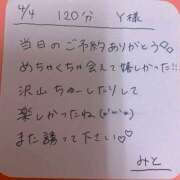 4/4 120分 Y様
当日のご予約ありがとう♡
めちゃくちゃ会えて嬉しかった!!
沢山ちゅーしたりして
楽しかったね(^o^)
また誘って下さい♡♡
みと